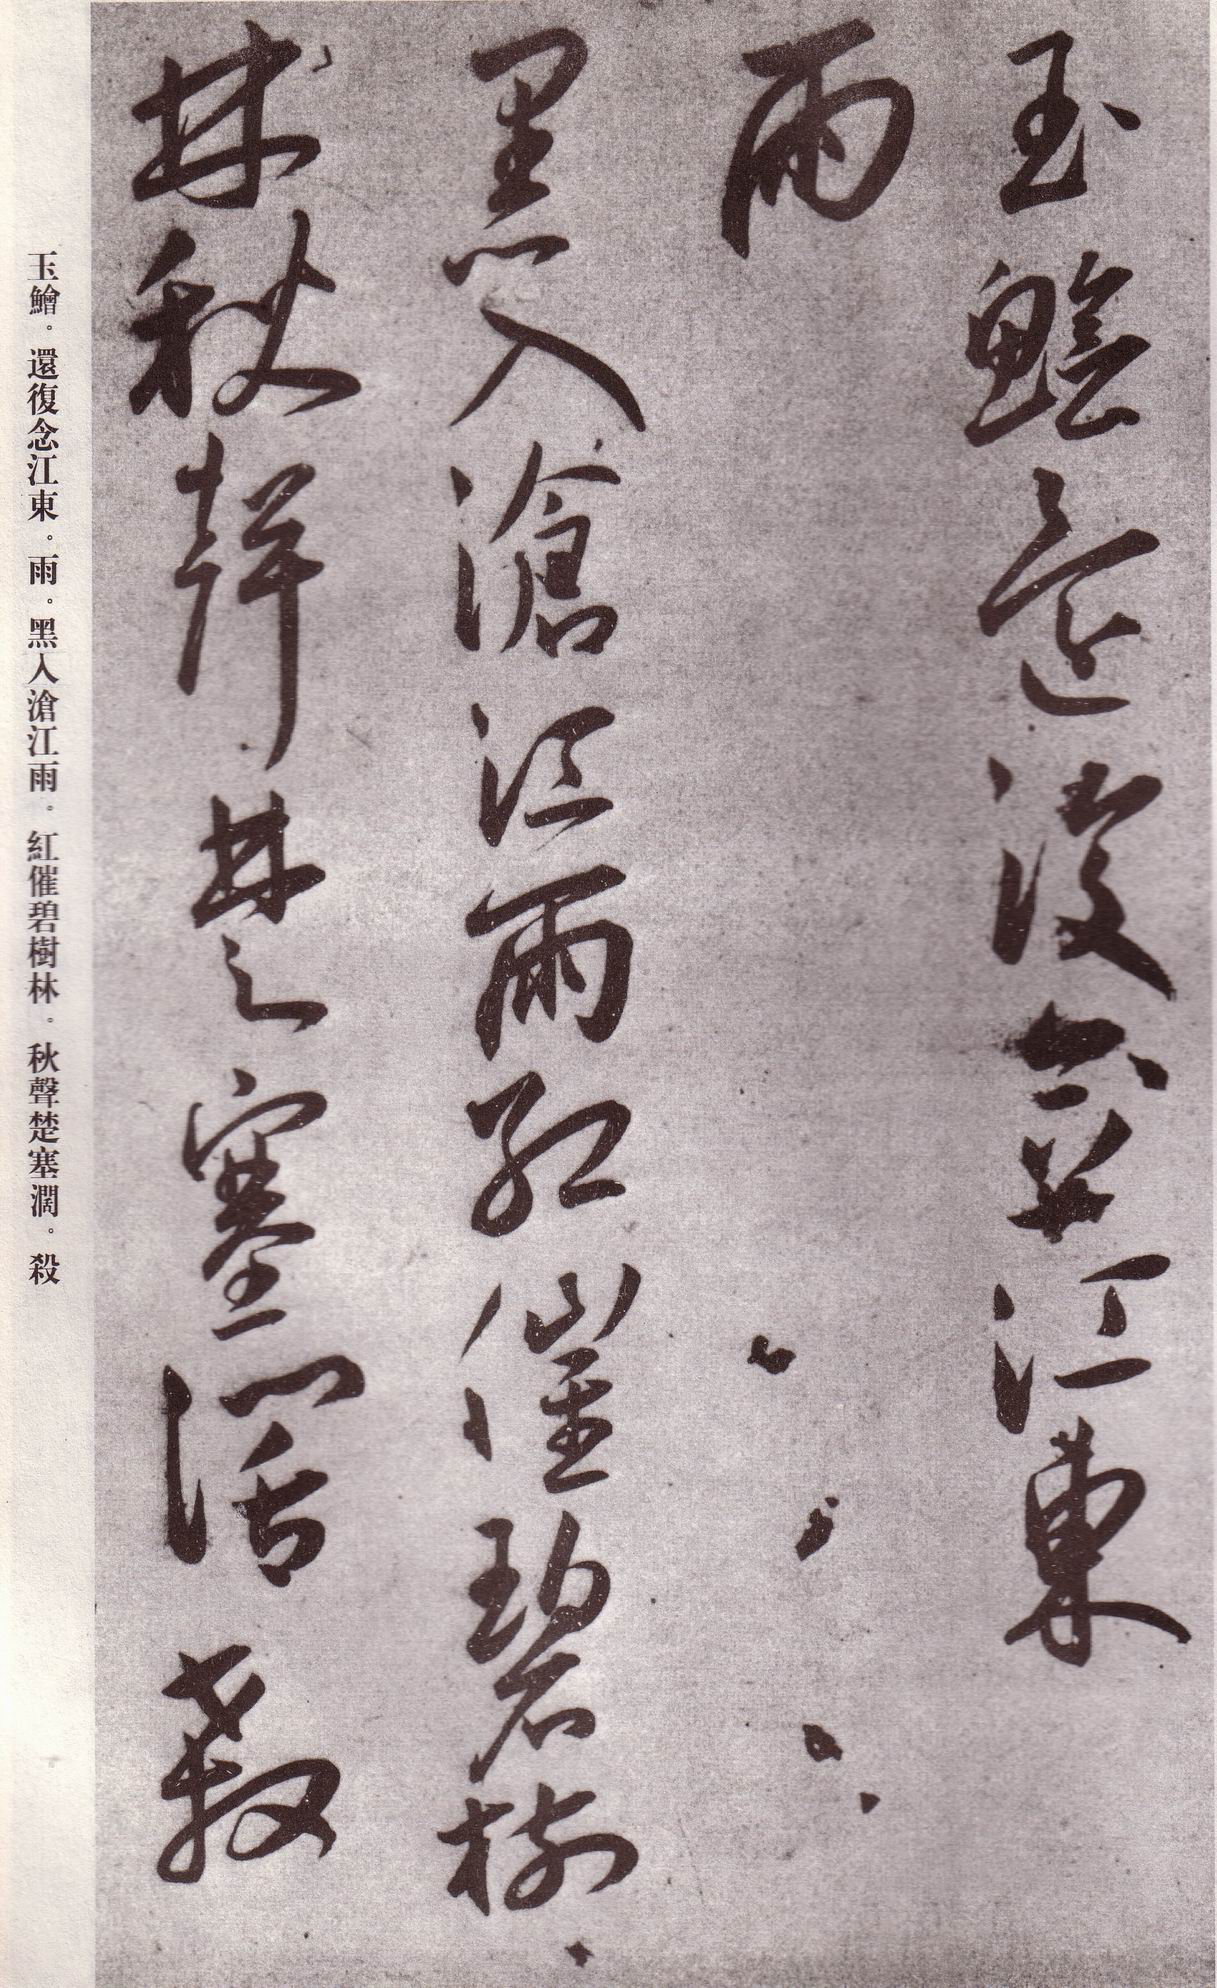 玉鱠還復念江東
雨
黑入滄江雨紅催碧樹
林秋聲楚塞濶殺
玉鱠。還復念江東。雨。黑入滄江雨。紅催碧樹林。秋聲楚塞濶。殺